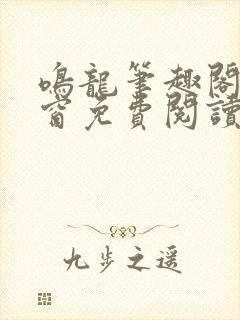 鳴龍筆趣閣
窗免費閱讀
九步之遥